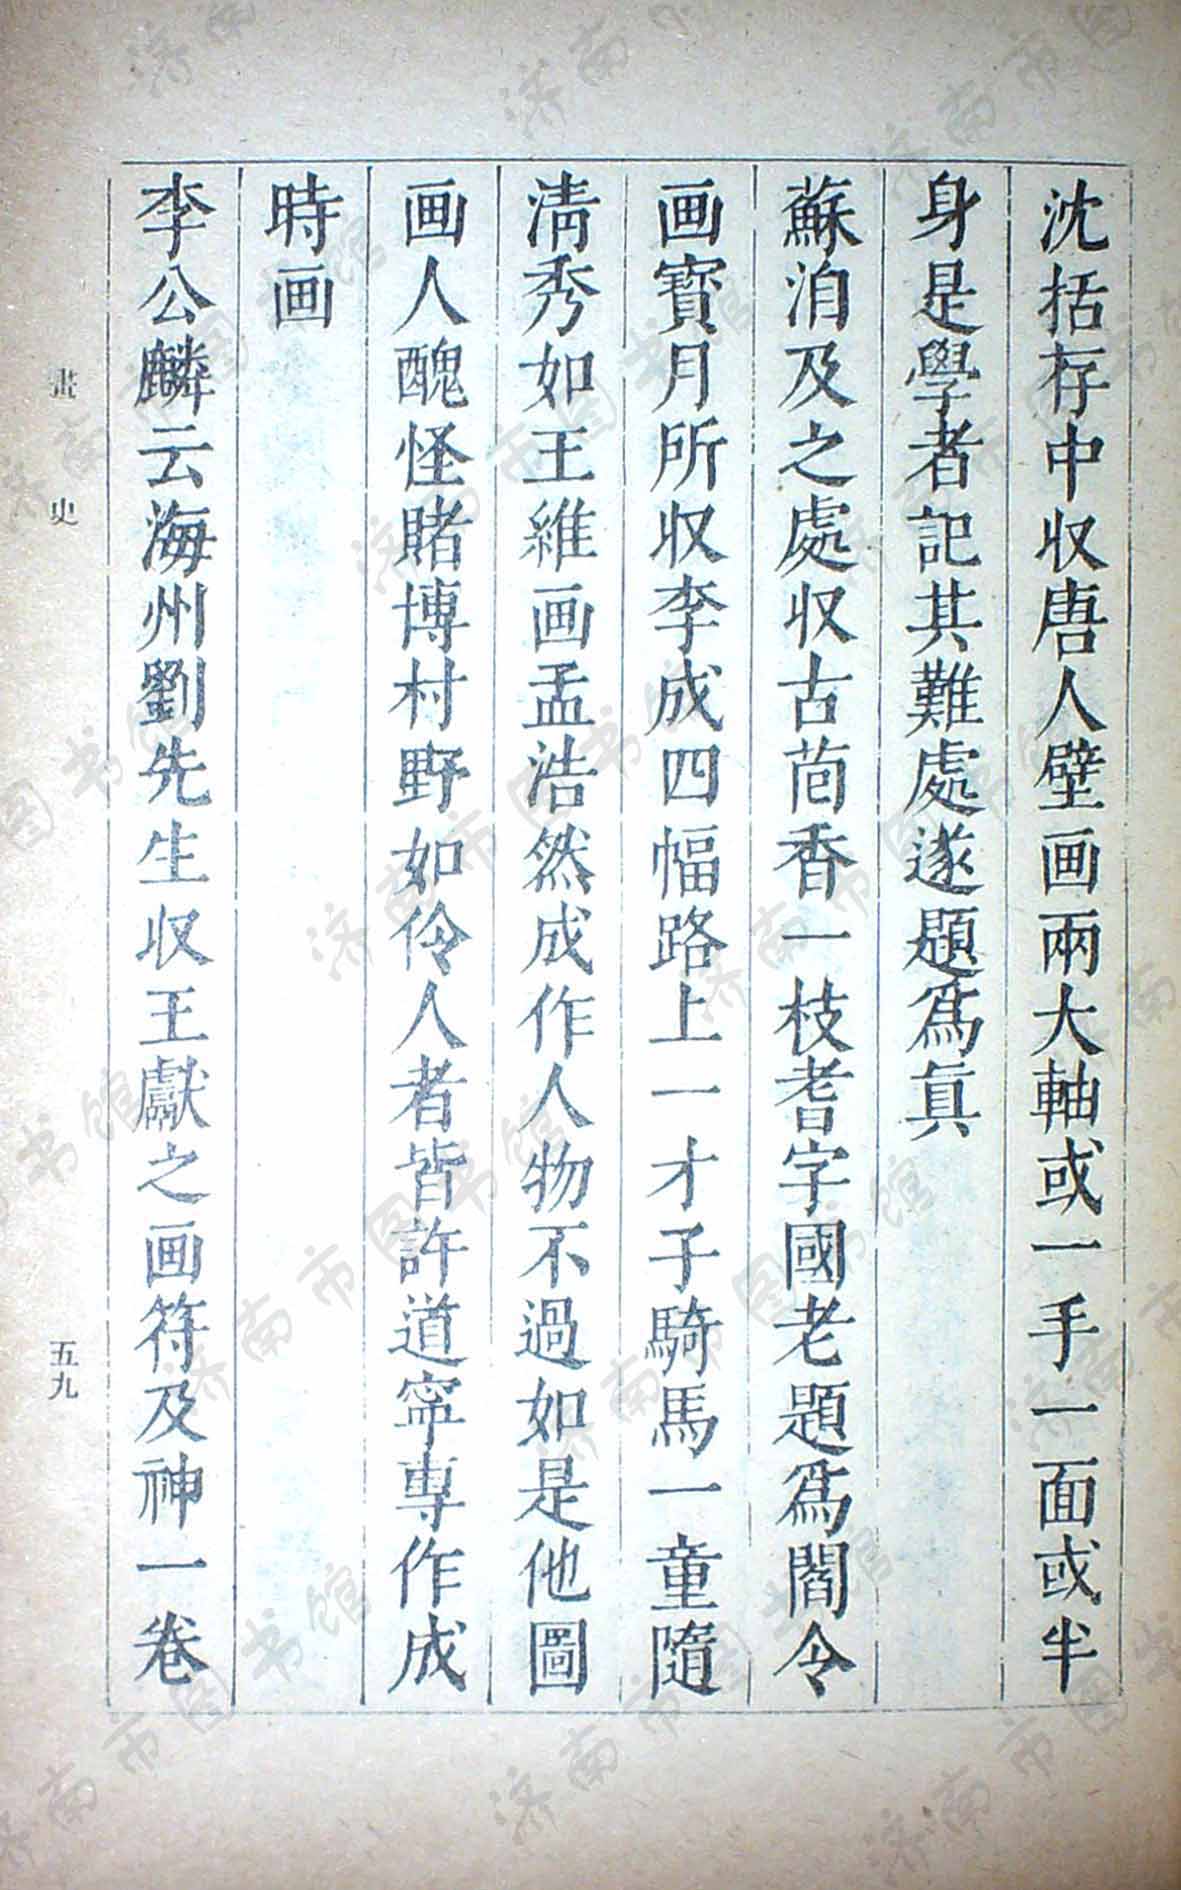 沈括存中収唐人壁画兩大軸或一手一面或半
身是學者記其難處遂題爲眞
蘇洎及之處収古茴香一枝耆字國老題爲閻令
画寶月所収李成四幅路上一才子騎馬一童隨
淸秀如王維画孟浩然成作人物不過如是他圖
画人醜怪賭博村野如伶人者皆許道寜專作成
時画
李公麟云海州劉先生収王獻之画符及神一卷
畫史
五九
济南市图书馆